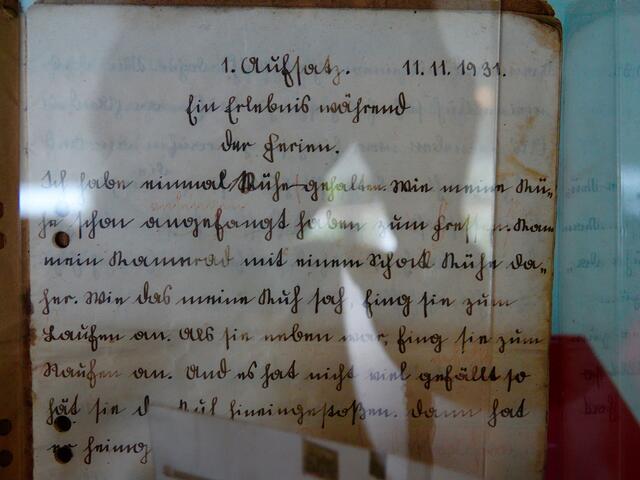 1. Aufsatz. 11. 11. 1931.
Ein Erlebnis während
der Ferien.
Ich habe einmal Kühe gehalten. Wie meine Kü-
he schon angefangt haben zum Fressen. Kam
mein Kammerad mit einem Schock Kühe da-
her. Wie das meine Kuh sah, fing sie zum
Laufen an. Als sie neben war, fing sie zum
Raufen an. Und es hat nicht viel gefällt so
hät sie d Kuh hineingestoßen. Dann hat
er heimg